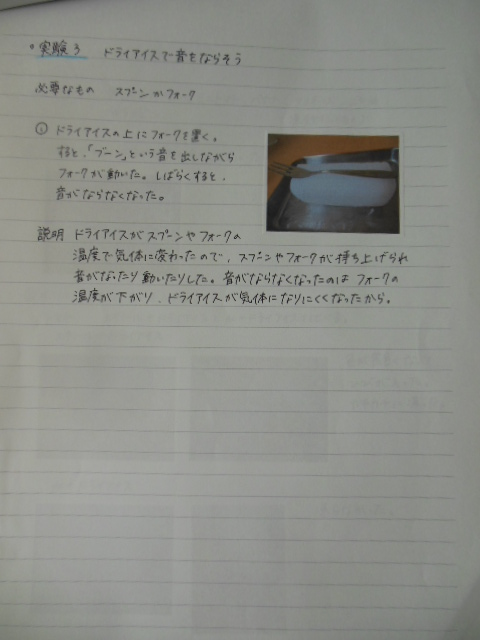 ○ 実験3 ドライアイスで音をならそう
必要なもの スプーンかフォーク
① ドライアイスの上にフォークを置く。
すると、「ブーン」という音を出しながら
フォークが動いた。しばらくすると、
音がならなくなった。
説明 ドライアイスがスプーンやフォークの
温度で気体に変わったので、スプーンやフォークが持ち上げられ
音がなったり動いたりした。音がならなくなったのはフォークの
温度が下がり、ドライアイスが気体になりにくくなったから。